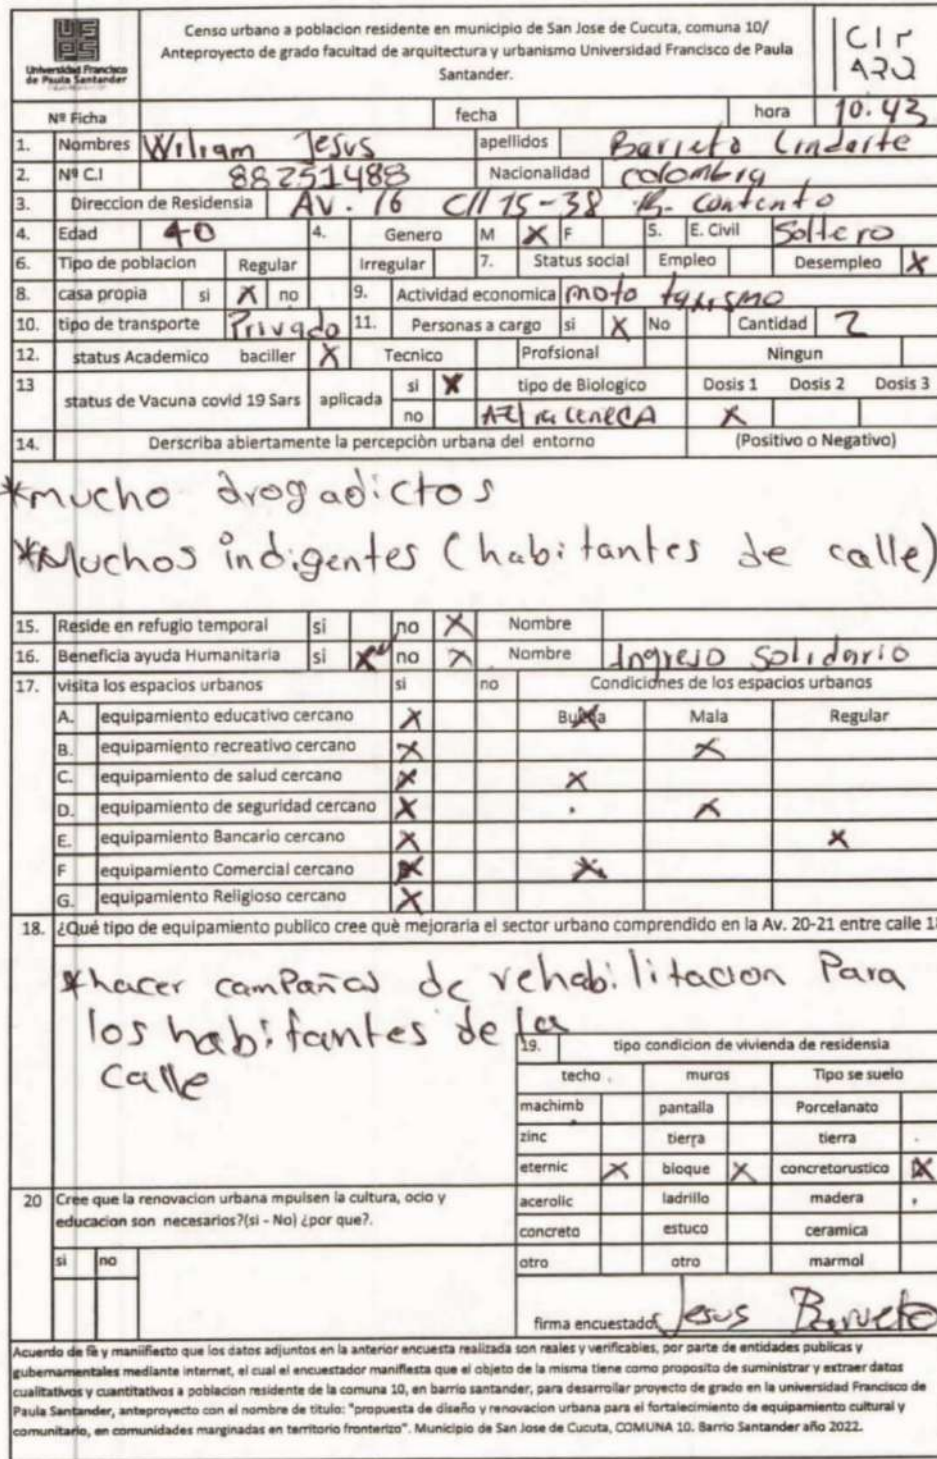 Universidad Francisco
de Paula Santander
Censo urbano a poblacion residente en municipio de San Jose de Cucuta, comuna 10/
Anteproyecto de grado facultad de arquitectura y urbanismo Universidad Francisco de Paula
Santander.
CIr
ARQ
Nº Ficha fecha hora 10:43
1. Nombres Wiliam Jesus apellidos Barreto Lindarte
2. Nº C.I 88251488 Nacionalidad colombia
3. Direccion de Residensia AV. 16 Cll 15-38 B. Contento
4. Edad 40 4. Genero M X F 5. E. Civil Soltero
6. Tipo de poblacion Regular Irregular 7. Status social Empleo Desempleo X
8. casa propia si X no 9. Actividad economica moto taxismo
10. tipo de transporte Privado 11. Personas a cargo si X No Cantidad 2
12. status Academico baciller X Tecnico Profsional Ningun
13 status de Vacuna covid 19 Sars aplicada si X tipo de Biologico Dosis 1 Dosis 2 Dosis 3
no X
14. Derscriba abiertamente la percepciòn urbana del entorno (Positivo o Negativo)
*mucho drogadictos
*Muchos indigentes (habitantes de calle)
15. Reside en refugio temporal si no X Nombre
16. Beneficia ayuda Humanitaria si X no X Nombre Ingreso Solidario
17. visita los espacios urbanos si no Condiciones de los espacios urbanos
A. equipamiento educativo cercano X Buena Mala Regular
B. equipamiento recreativo cercano X X
C. equipamiento de salud cercano X X
D. equipamiento de seguridad cercano X X
E. equipamiento Bancario cercano X X
F equipamiento Comercial cercano X X
G. equipamiento Religioso cercano X
18. ¿Qué tipo de equipamiento publico cree què mejoraria el sector urbano comprendido en la Av. 20-21 entre calle 18
*hacer campañas de rehabilitacion Para
los habitantes de la
Calle
19. tipo condicion de vivienda de residensia
techo muros Tipo se suelo
machimb pantalla Porcelanato
zinc tierra tierra
eternic X bloque X concretorustico X
20 Cree que la renovacion urbana mpulsen la cultura, ocio y
educacion son necesarios?(si - No) ¿por que?.
acerolic ladrillo madera
concreto estuco ceramica
si no
otro otro marmol
firma encuestado Jesus Barreto
Acuerdo de fè y maniifiesto que los datos adjuntos en la anterior encuesta realizada son reales y verificables, por parte de entidades publicas y
gubernamentales mediante internet, el cual el encuestador manifiesta que el objeto de la misma tiene como proposito de suministrar y extraer datos
cualitativos y cuantitativos a poblacion residente de la comuna 10, en barrio santander, para desarrollar proyecto de grado en la universidad Francisco de
Paula Santander, anteproyecto con el nombre de titulo: "propuesta de diseño y renovacion urbana para el fortalecimiento de equipamiento cultural y
comunitario, en comunidades marginadas en territorio fronterizo". Municipio de San Jose de Cucuta, COMUNA 10. Barrio Santander año 2022.